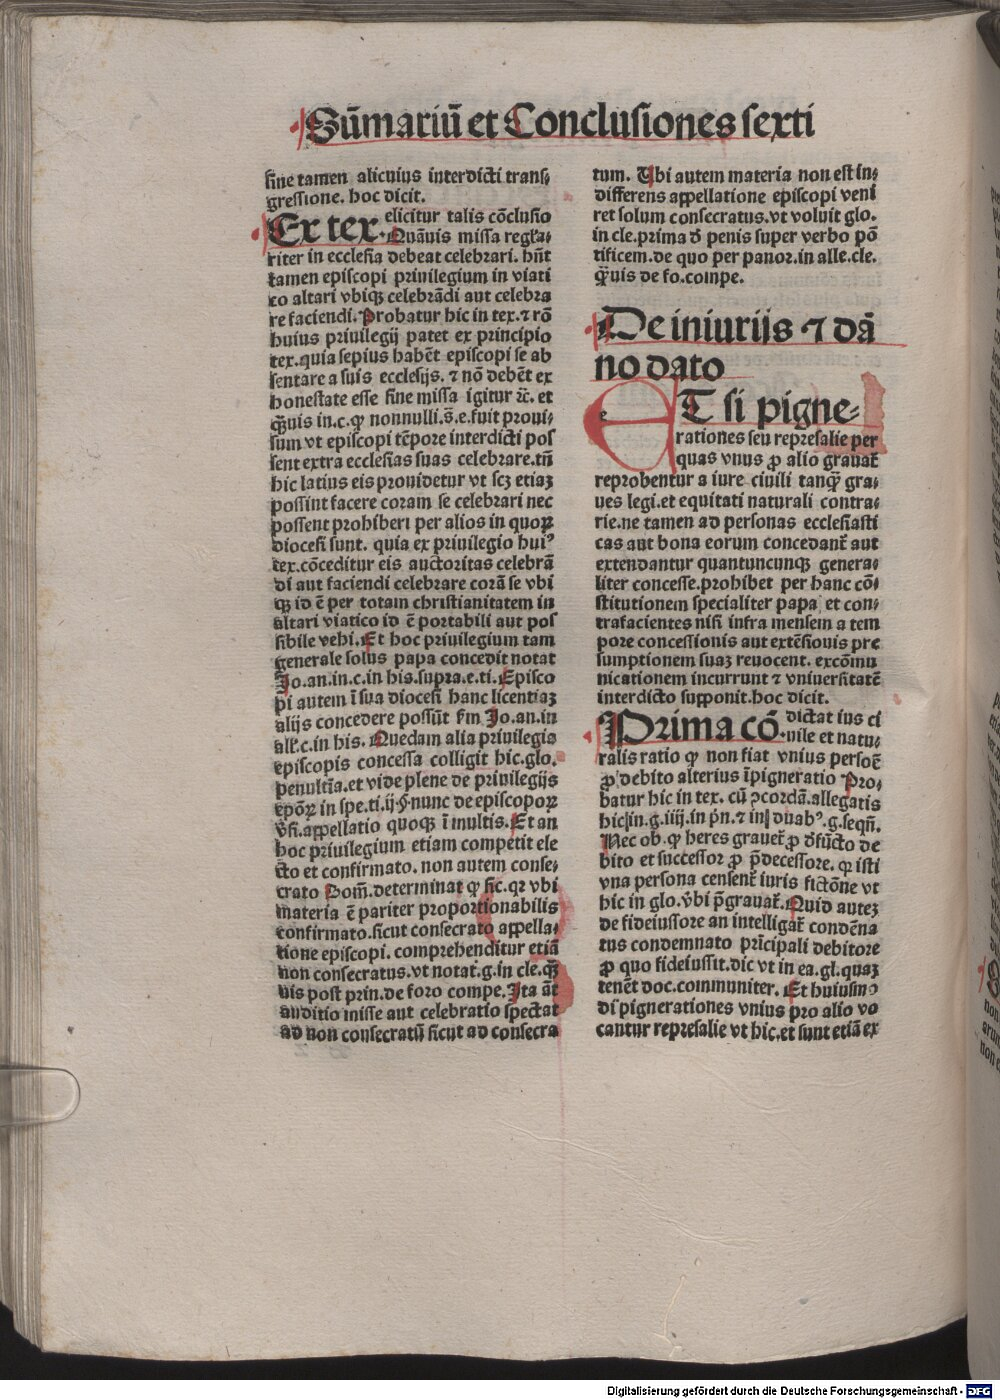 Sūmariū et Conclusiones sexti
sine tamen alicuius interdicti trans⸗
gressione. hoc dicit.
Ex tex. elicitur talis cōclusio
Quāuis missa regła⸗
riter in ecclesia debeat celebrari. hn̄t
tamen episcopi priuilegium in viati
co altari vbiqʒ celebrādi aut celebra
re faciendi. Probatur hic in tex. ⁊ rō
huius priuilegij patet ex principio
tex. quia sepius habēt episcopi se ab
sentare a suis ecclesijs. ⁊ nō debēt ex
honestate esse sine missa igitur ⁊c̄. et
q̄uis in. c. ꝙ nonnulli. s̄. e. fuit proui⸗
sum vt episcopi tēpore interdicti pos
sent extra ecclesias suas celebrare. tn̄
hic latius eis prouidetur vt scʒ etiaʒ
possint facere coram se celebrari nec
possent prohiberi per alios in quoꝝ
diocesi sunt. quia ex priuilegio huiꝰ
tex. cōceditur eis auctoritas celebrā
di aut faciendi celebrare corā se vbi
qʒ id ē per totam christianitatem in
altari viatico id ē portabili aut pos
sibile vehi. Et hoc priuilegium tam
generale solus papa concedit notat
Jo. an. in. c. in his. supra. e. ti. Episco
pi autem ī sua diocesi hanc licentiaʒ
alijs concedere possūt fm Jo. an. in
all. c. in his. Quedam alia priuilegia
episcopis concessa colligit hic. glo.
penultīa. et vide plene de priuilegijs
epōꝝ in spe. ti. ij. §. nunc de episcopoꝝ
v̄si. appellatio quoqʒ ī multis. Et an
hoc priuilegium etiam competit ele
cto et confirmato. non autem conse⸗
crato Dom̄. determinat ꝙ sic. qꝛ vbi
materia ē pariter proportionabilis
confirmato. sicut consecrato appella⸗
tione episcopi. comprehenditur etiā
non consecratus. vt notat. g. in cle. q̄
uis post prin. de foro compe. Ita āt
auditio misse aut celebratio spectat
ad non consecratū sicut ad consecra
tum. Ubi autem materia non est in⸗
differens appellatione episcopi veni
ret solum consecratus. vt voluit glo.
in cle. prima d̄ penis super verbo pō
tificem. de quo per panor. in alle. cle.
q̄uis de fo. compe.
De iniurijs ⁊ dā
no dato
e
ET si pigne⸗
rationes seu represalie per
quas vnus ꝓ alio grauat᷑
reprobentur a iure ciuili tanq̄ gra⸗
ues legi. et equitati naturali contra⸗
rie. ne tamen ad personas ecclesiasti
cas aut bona eorum concedant᷑ aut
extendantur quantuncunqʒ genera⸗
liter concesse. prohibet per hanc cō⸗
stitutionem specialiter papa et con⸗
trafacientes nisi infra mensem a tem
pore concessionis aut extēsiouis pre
sumptionem suaʒ reuocent. excōmu
nicationem incurrunt ⁊ vniuersitatē
interdicto supponit. hoc dicit.
Prima cō. dictat ius ci
uile et natu⸗
ralis ratio ꝙ non fiat vnius persoē
ꝓ debito alterius īpigneratio Pro⸗
batur hic in tex. cū ꝯcordā. allegatis
hic in. g. iiij. in pn̄. ⁊ in duabꝰ. g. seqn̄.
Nec ob. ꝙ heres grauet᷑ ꝓ d̄fūcto de
bito et successor ꝓ p̄decessore. qꝛ isti
vna persona censent᷑ iuris fictōne vt
hic in glo. v̄bi p̄grauat᷑. Quid auteʒ
de fideiussore an intelligat᷑ condēna
tus condemnato prīcipali debitore
ꝓ quo fideiussit. dic vt in ea. gl. quaʒ
tenēt doc. communiter. Et huiusmo
di pignerationes vnius pro alio vo
cantur represalie vt hic. et sunt etiā ex
Digitalisierung gefördert durch die Deutsche Forschungsgemeinschaft - DFG